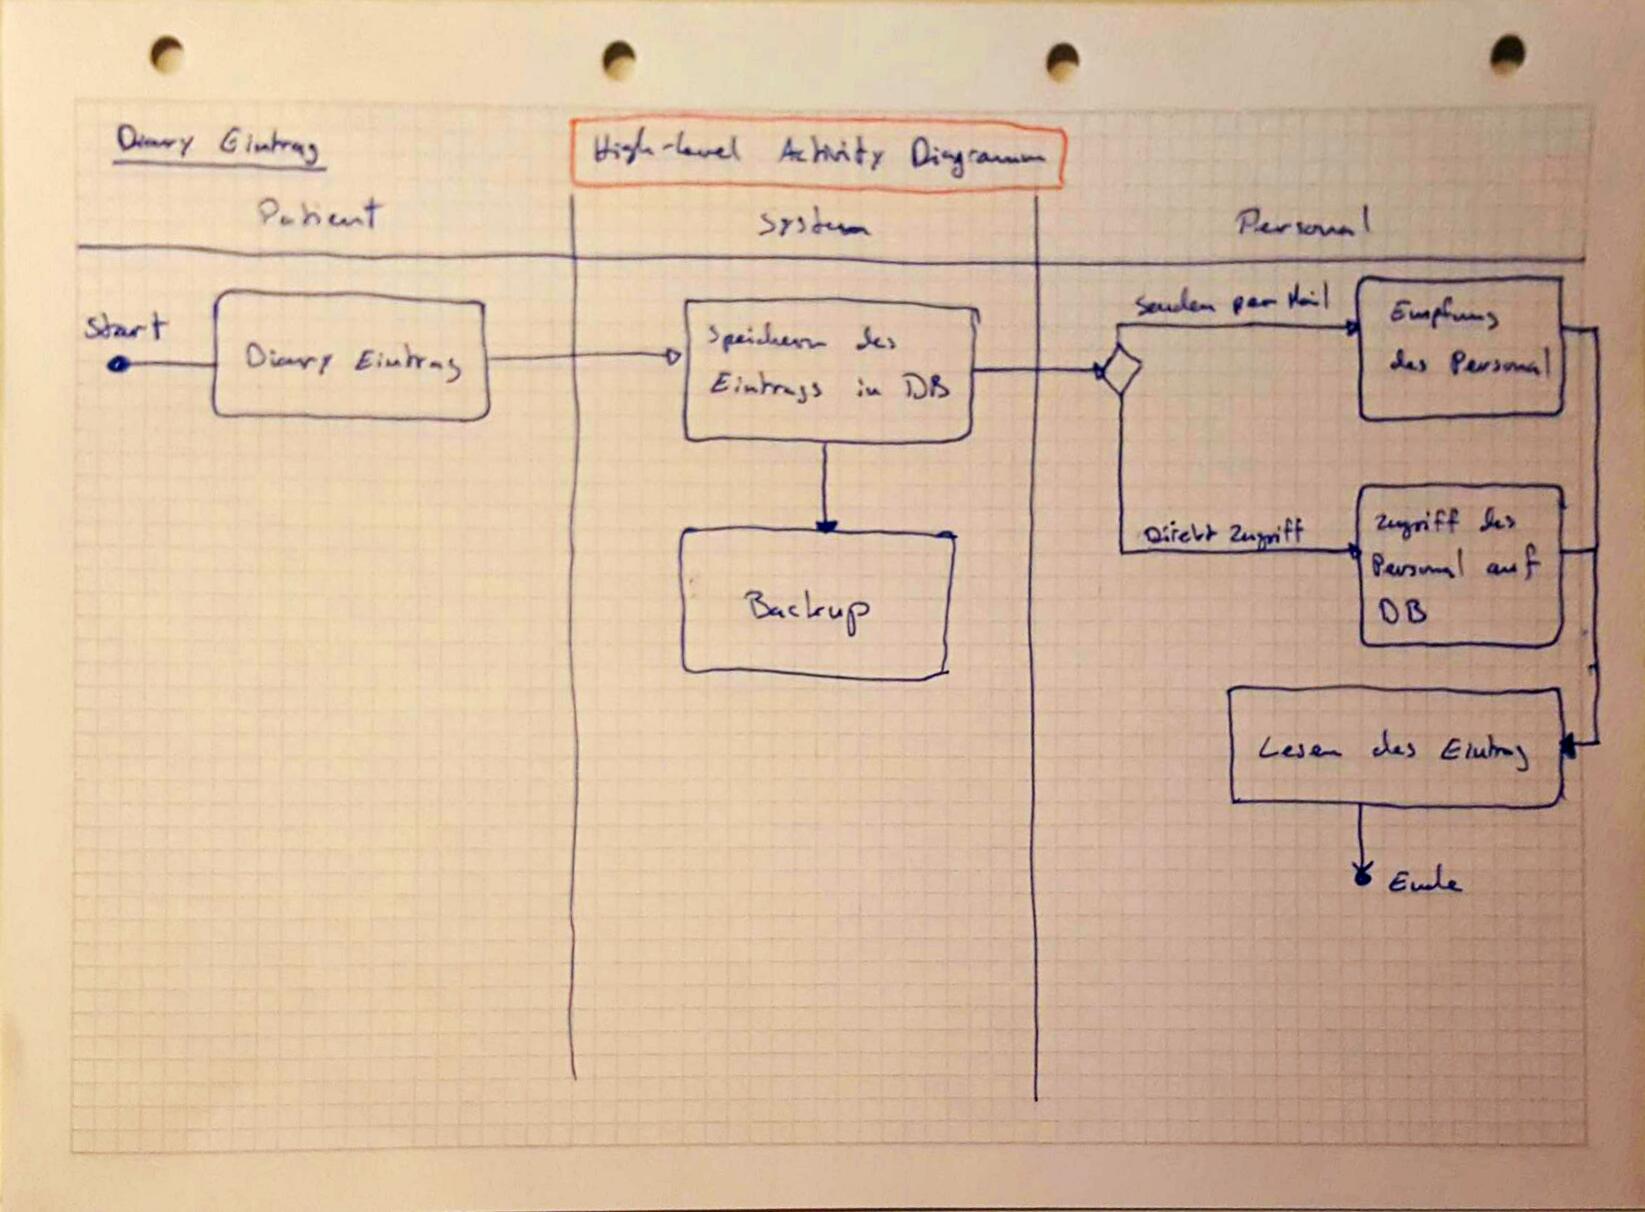 Diary Eintrag
High-level Activity Diagramm
Patient
System
Personal
Start
Diary Eintrag
Speichern des
Eintrags in DB
Backup
Senden per Mail
Empfang
des Personal
Direkt Zugriff
Zugriff des
Personal auf
DB
Lesen des Eintrag
Ende